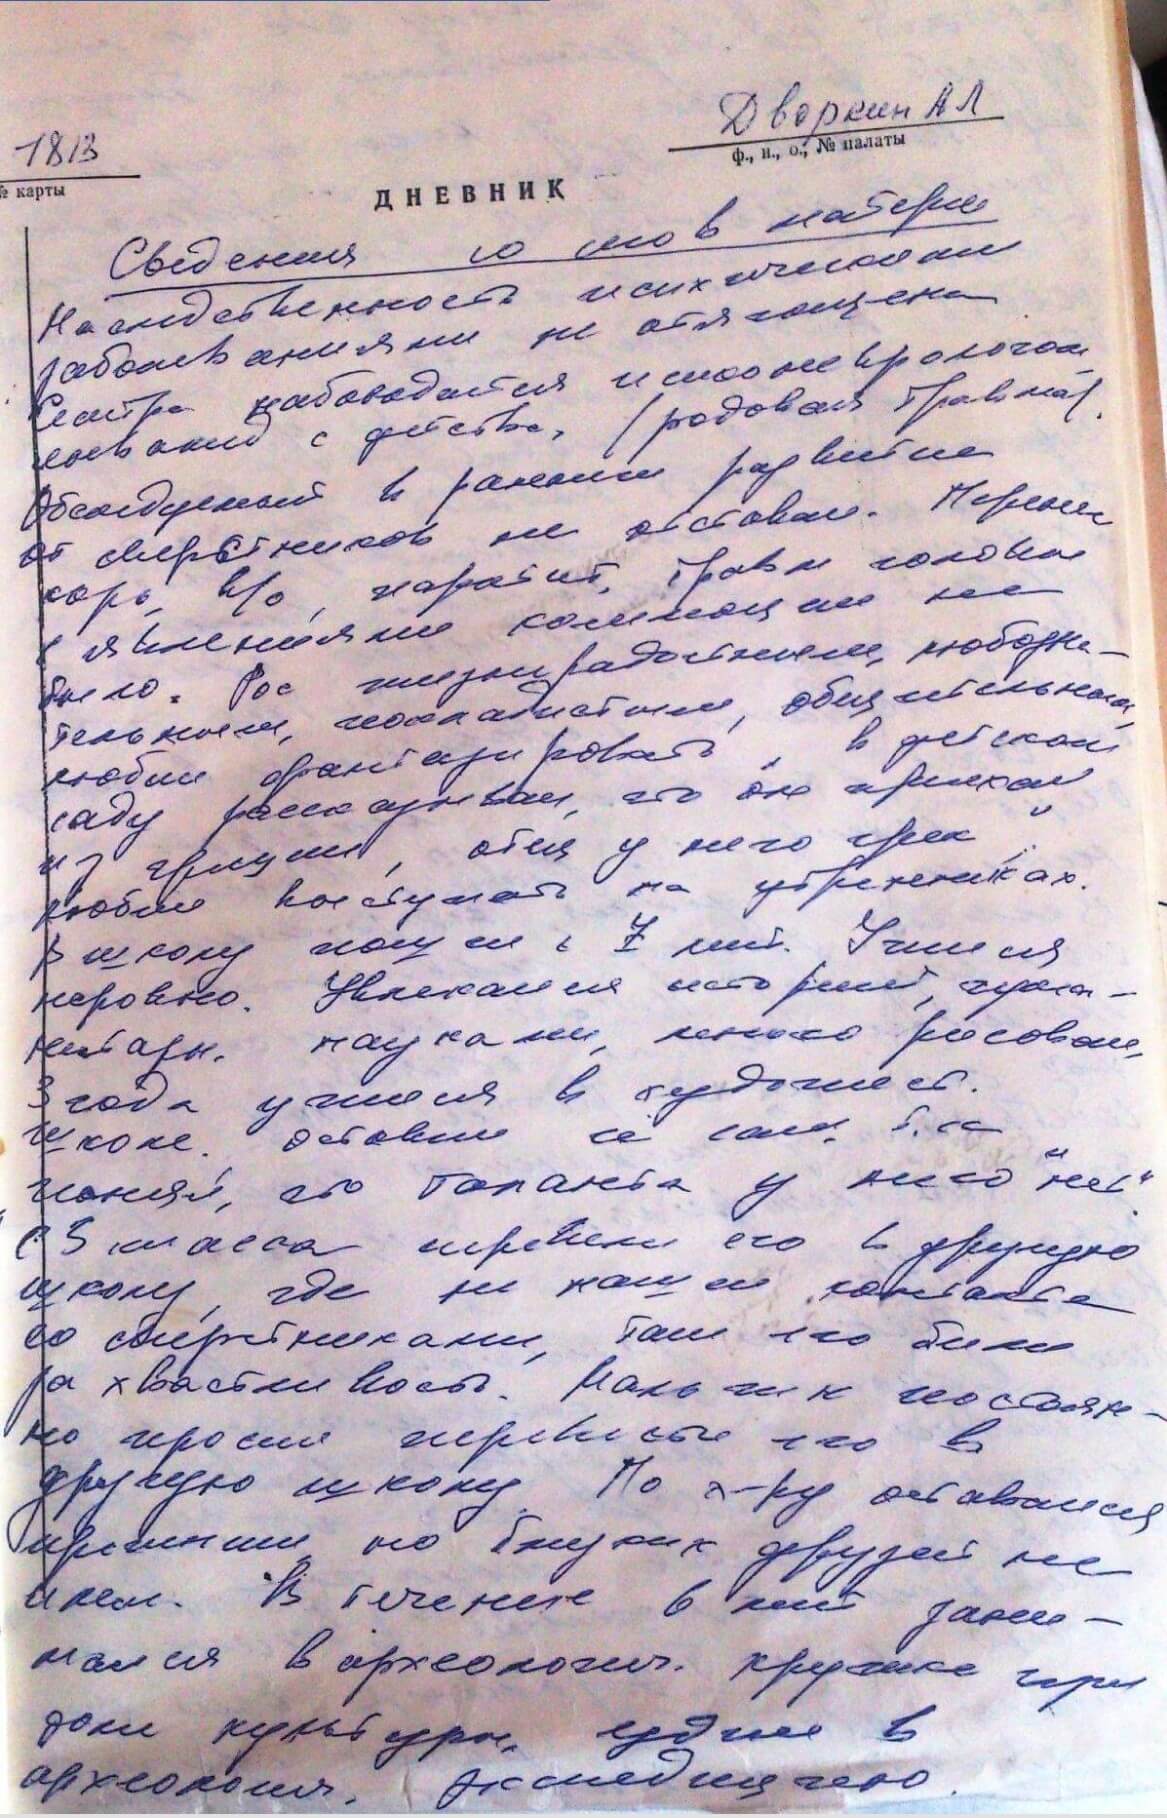 1813
№ карты
Дворкин А Л
ф., и., о., № палаты
ДНЕВНИК
Сведения со слов матери
Наследственность психическими
заболеваниями не отягощена
Сестра наблюдается психоневрологом
с детства, (родовая травма).
Обследуемый в раннем развитии
от сверстников не отставал. Перенес
корь, в/о, паротит, травм головы
с явлениями коммоции не
было. Рос жизнерадостным, любозна-
тельным, общительным,
любил фантазировать, в детском
саду рассказывал, что "он приехал
из Греции, отец у него грек".
любил выступать на утренниках.
В школу пошел с 7 лет. Учился
неровно. Увлекался историей, гума-
нитарн. науками, много рисовал,
3 года учился в художест.
школе. оставил ее сам, т.к.
понял, что таланта у него "нет".
С 5 класса перевели его в другую
школу, где не нашел контакта
со сверстниками, там его били
за хвастливость. Мальчик постоян-
но просил перевести его в
другую школу. По х-ру оставался
прежним, но близких друзей не
имел. В течение 6 лет зани-
мался в археологич. кружке при
доме культуры, ездил в
археологич. экспедицию.